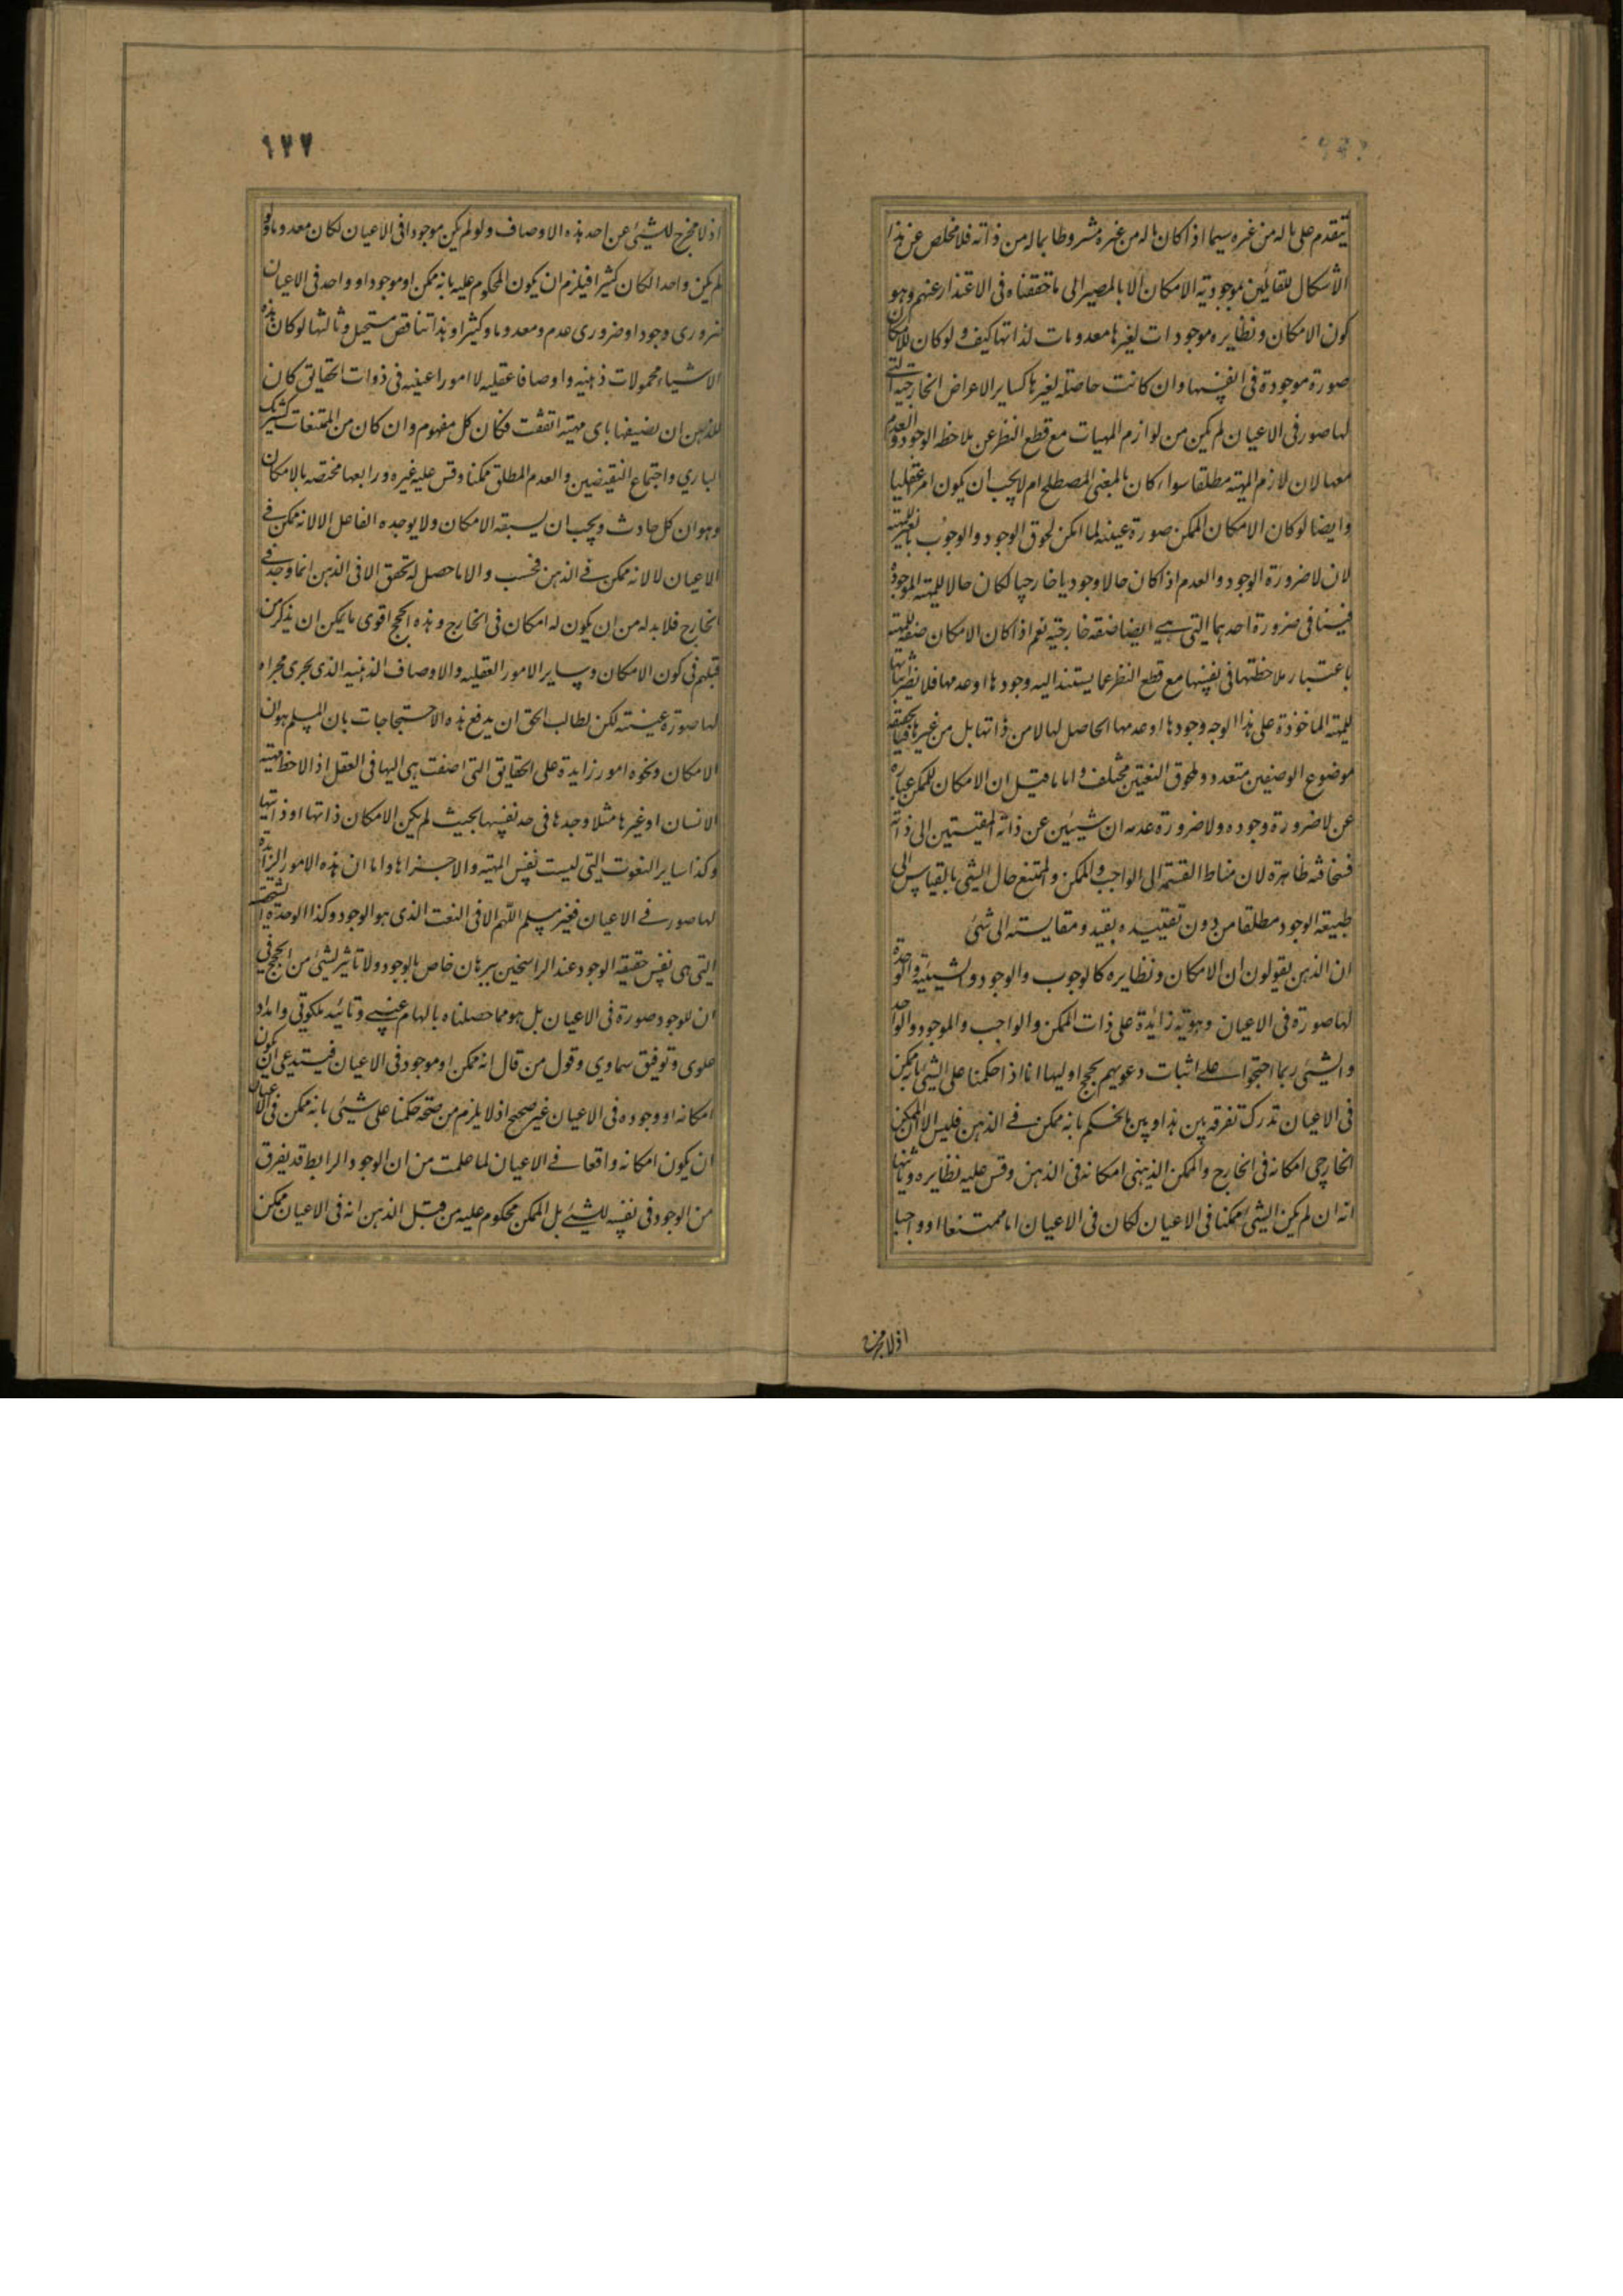 يتقدم على ما له من غيره سيما اذا كان ما له من غيره مشروطا بما له من ذاته فلا مخلص عن هذا
الاشكال للقائلين بموجودية الامكان الا بالمصير الى ما حققناه فى الاعتذار عنهم وهو
كون الامكان ونظايره موجودات لغيرها معدومات لذاتها كيف ولو كان للامكان
صورة موجودة فى انفسها وان كانت حاصلة لغيرها كساير الاعراض الخارجية التى
لها صور فى الاعيان لم يكن من لوازم المهيات مع قطع النظر عن ملاحظة الوجود والعدم
معها لان لازم المهية مطلقا سواء كان بالمعنى المصطلح ام لا يجب ان يكون امرا عقليا
وايضا لو كان الامكان الممكن صورة عينية لما امكن لحوق الوجود والوجوب بالغير للمهية
لان لا ضرورة الوجود والعدم اذا كان حالا وجوديا خارجيا لكان حالا للمهية الموجودة
فينافى ضرورة احدهما التى هي ايضا صفة خارجية نعم اذا كان الامكان صفة للمهية
باعتبار ملاحظتها فى نفسها مع قطع النظر عما يستند اليه وجودها او عدمها فلا نظر بثباتها
للمهية الماخوذة على هذا الوجه وجودها او عدمها الحاصل لها لا من ذاتها بل من غيرها فبالحقيقة
موضوع الوصفين متعدد ولحوق النعتين مختلف واما ما قيل ان الامكان للممكن عبارة
عن لا ضرورة وجوده ولا ضرورة عدمه ان شيئين عن ذاته المقيستين الى ذاته
فسخافته ظاهرة لان مناط القسمة الى الواجب والممكن والممتنع حال الشئ بالقياس الى
طبيعة الوجود مطلقا من دون تقييده بقيد ومقايسته الى شئ
ان الذين يقولون ان الامكان ونظايره كالوجوب والوجود والشيئية والوحدة
لها صورة فى الاعيان وهوية زايدة على ذات الممكن والواجب والموجود والواحد
والشئ ربما احتجوا على اثبات دعويهم بحجج اوليها انا اذا حكمنا على الشئ بانه ممكن
فى الاعيان ندرك تفرقة بين هذا وبين الحكم بانه ممكن فى الذهن فليس الا ان الممكن
الخارجى امكانه فى الخارج والممكن الذهنى امكانه فى الذهن وقس عليه نظايره وثانيها
انه ان لم يكن الشئ ممكنا فى الاعيان لكان فى الاعيان اما ممتنعا او واجبا
اذ لا مخرج
١٢٧
اذ لا مخرج للشئ عن احد هذه الاوصاف ولو لم يكن موجودا فى الاعيان لكان معدوما ولو
لم يكن واحدا لكان كثيرا فيلزم ان يكون المحكوم عليه بانه ممكن او موجودا او واحد فى الاعيان
ضرورى وجود او ضرورى عدم ومعدوما وكثيرا وهذا تناقض مستحيل وثالثها لو كان هذه
الاشياء محمولات ذهنية واوصافا عقلية لا امورا عينية فى ذوات الحقايق كان
للذهن ان يضيفها باى مهية اتفقت فكان كل مفهوم وان كان من الممتنعات كشريك
البارى واجتماع النقيضين والعدم المطلق ممكنا وقس عليه غيره ورابعها مختصة بالامكان
وهو ان كل حادث ويجب ان يسبقه الامكان ولا يوجده الفاعل الا لانه ممكن فى
الاعيان لا لانه ممكن فى الذهن فحسب والا ما حصل له تحقق الا فى الذهن انما وجد فى
الخارج فلا بد له من ان يكون له امكان فى الخارج وهذه الحجج اقوى ما يمكن ان يذكر من
قبلهم فى كون الامكان وساير الامور العقلية والاوصاف الذهنية الذى يجرى مجراه
لها صورة عينية لكن لطالب الحق ان يدفع هذه الاحتجاجات بان المسلم هو ان
الامكان ونحوه امور زايدة على الحقايق التى اضفت هى اليها فى العقل اذا لاحظ مهية
الانسان او غيرها مثلا وجدها فى حد نفسها بحيث لم يكن الامكان ذاتها او ذاتيتها
وكذا ساير النعوت التى ليست نفس المهية والا جزاها واما ان هذه الامور الزايدة
لها صور فى الاعيان فغير مسلم اللهم الا فى النعت الذى هو الوجود وكذا الوحدة الشخصية
التى هى نفس حقيقة الوجود عند الراسخين ببرهان خاص بالوجود ولا تاثير لشئ من الحجج فى
ان للوجود صورة فى الاعيان بل هو مما حصلناه بالهام غيبي وتائيد ملكوتى وامداد
علوى وتوفيق سماوي وقول من قال انه ممكن او موجود فى الاعيان فيستدعى ان يكون
امكانه او وجوده فى الاعيان غير صحيح اذ لا يلزم من صحة حكمنا على شيئ بانه ممكن فى الاعيان
ان يكون امكانه واقعا فى الاعيان لما علمت من ان الوجود الرابط قد يفرق
من الوجود فى نفسه للشئ بل الممكن محكوم عليه من قبل الذهن انه فى الاعيان ممكن